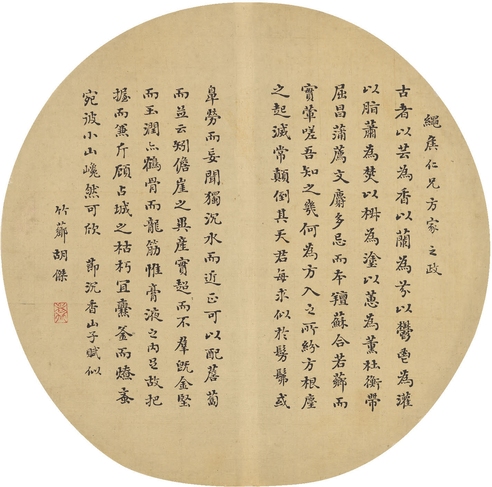 繩仁兄方家之政
古者以芸為香以蘭為芬以鬱鬯為灌
以脂蕭為焚以椒為塗以蕙為薰杜衡帶
屈昌蒲薦文麝多忌而本羶蘇合若薌而
實葷嗟吾知之幾何為六入之所紛方根塵
之起滅常顛倒其天君每求似於髣髴或
鼻勞而妄聞獨沉水而近正可以配薝蔔
而並云矧儋崖之異產實超而不羣既金堅
而玉潤亦鶴骨而龍筋惟膏液之內足故把
握而兼斤顧占城之枯朽宜爨釜而燎蚉
宛彼小山巉然可欣 節沉香山子賦似
竹薌胡傑